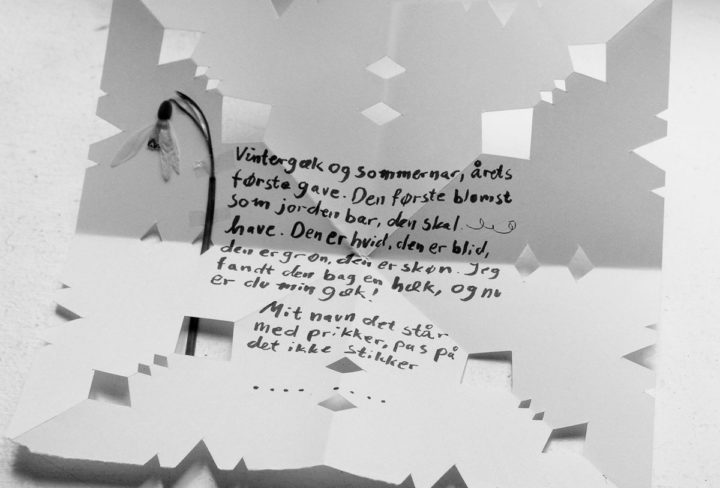 Vintergæk og sommernar, årets
første gave. Den første blomst
som jorden bar, den skal
have. Den er hvid, den er blid,
den er grøn, den er skøn. Jeg
fandt den bag en hæk, og nu
er du min gæk!
Mit navn det står
med prikker, pas på
det ikke stikker
..... . ....